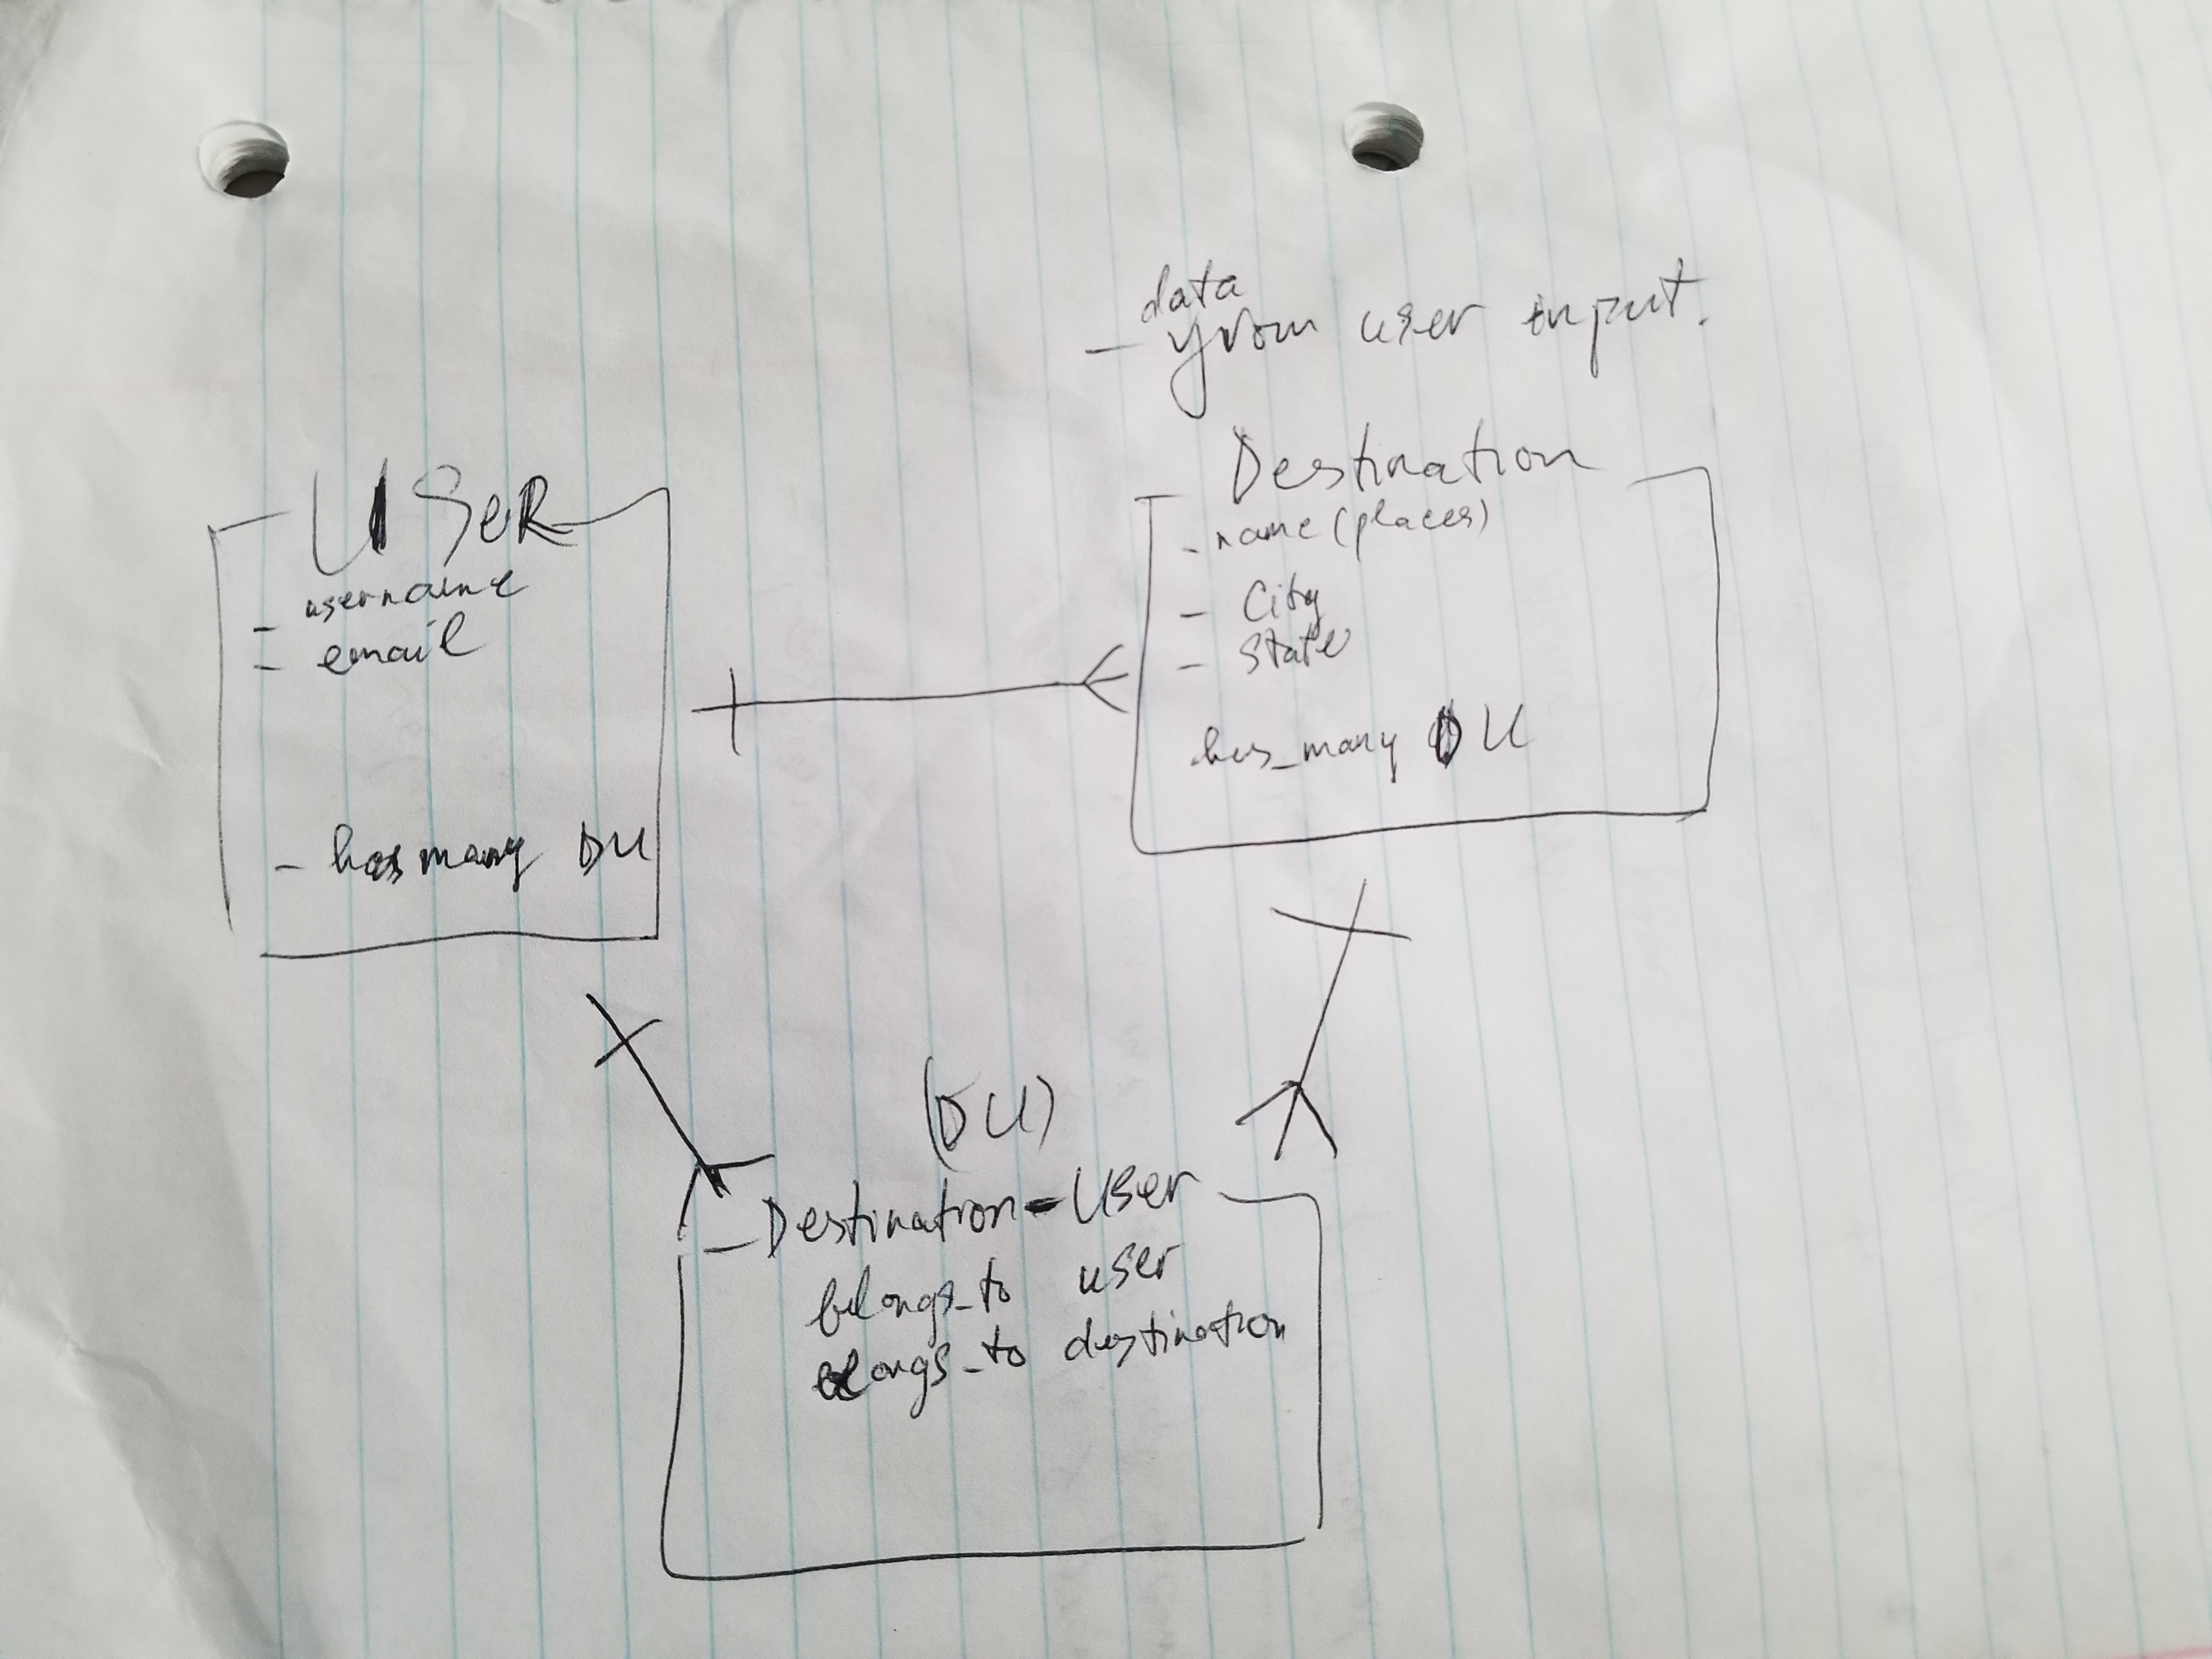 data
- from user input.
USeR
- username
- email
- has many DU
Destination
- name (places)
- City
- State
has_many DU
(DU)
- Destination-User
belongs_to user
belongs_to destination